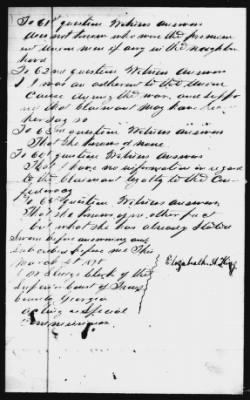 To 61st question Witness answers
does not know who were the prominent
Union men if any in the neighbor
hood
To 62nd question Witness answers
I was an adherent to the Union
Cause during the war, and
me that Claimant may have
her say so
To 63rd question Witness answers
That she knows of none
To 64 question Witness answers
That I have no information in regard
to the Claimant loyalty to the Con
federacy
To 65 question Witness answers
That she knows of no other fact
but what she has already stated
Sworn before answering and
subscribed before me this
March 1st 1878
Clerk of the
Superior Court of
County Georgia
acting as Special
Commissioner
Elizabeth A.